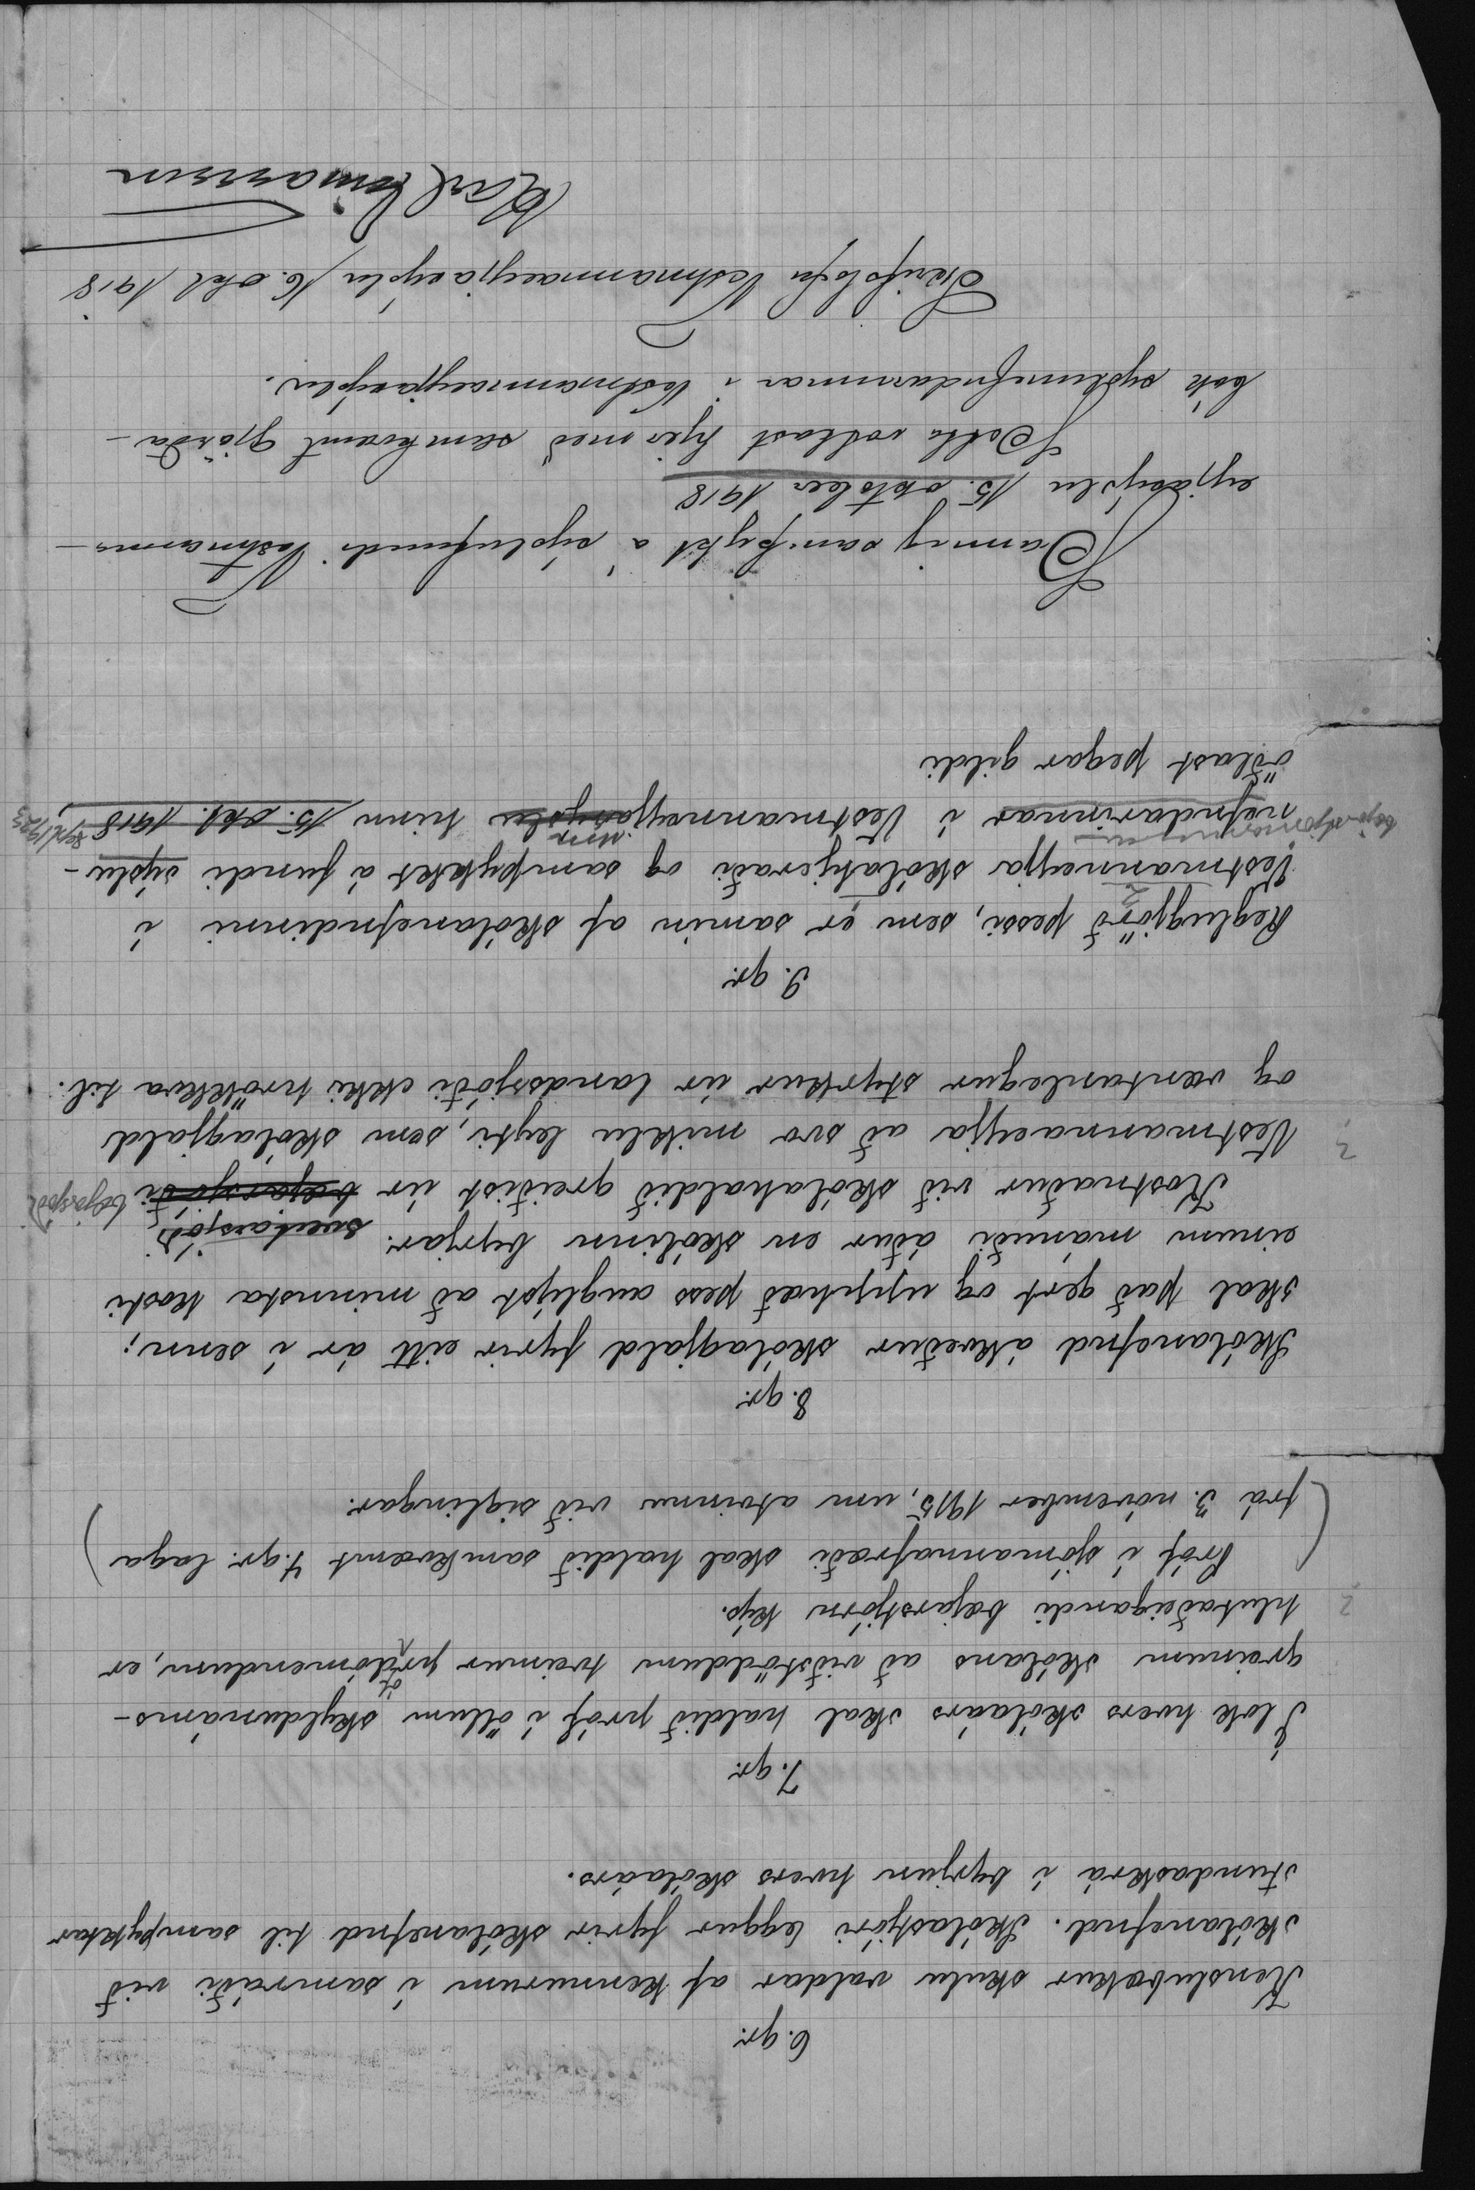 6. gr.
Kenslubækur skulu valdar af kennurum í samráði við
skólanefnd. Skólastjóri leggur fyrir skólanefnd til samþyktar
stundaskrá í byrjun hvers skólaárs.
7. gr.
Í lok hvers skólaárs skal haldið próf í öllum skyldunáms-
greinum skólans að viðstöddum tveimur prófdómendum, er
hlutaðeigandi bæjarstjórn kýs.
(Próf í sjómannafræði skal haldið samkvæmt 7. gr. laga
frá 3. nóvember 1915, um atvinnu við siglingar.)
8. gr.
Skólanefnd ákveður skólagjald fyrir eitt ár í senn;
skal það gert og upphæð þess auglýst að minnsta kosti
einum mánuði áður en skólinn byrjar.
sveitarsjóði
Kostnaður við skólahaldið greiðist úr bæjarsjóði bæjarsjóði
Vestmannaeyja að svo miklu leyti, sem skólagjald
og væntanlegur styrkur úr landssjóði ekki hrökkva til.
9. gr.
Reglugjörð þessi, sem er samin af skólanefndinni í
Vestmannaeyja skólahjeraði og samþykkt á fundi sýslu-
bæjarstjórnarinnar
nefndarinnar í Vestmannaeyjasýslu hinn 15. okt. 1918,
öðlast þegar gildi
Þannig samþykt á sýslufundi Vestmanna-
eyjasýslu 15. október 1918
Þetta vottast hjer með samkvæmt gjörða-
bók sýslunefndarinnar í Vestmannaeyjasýslu.
Skrifstofu Vestmannaeyjasýslu, 16. okt. 1918.
Karl Einarsson